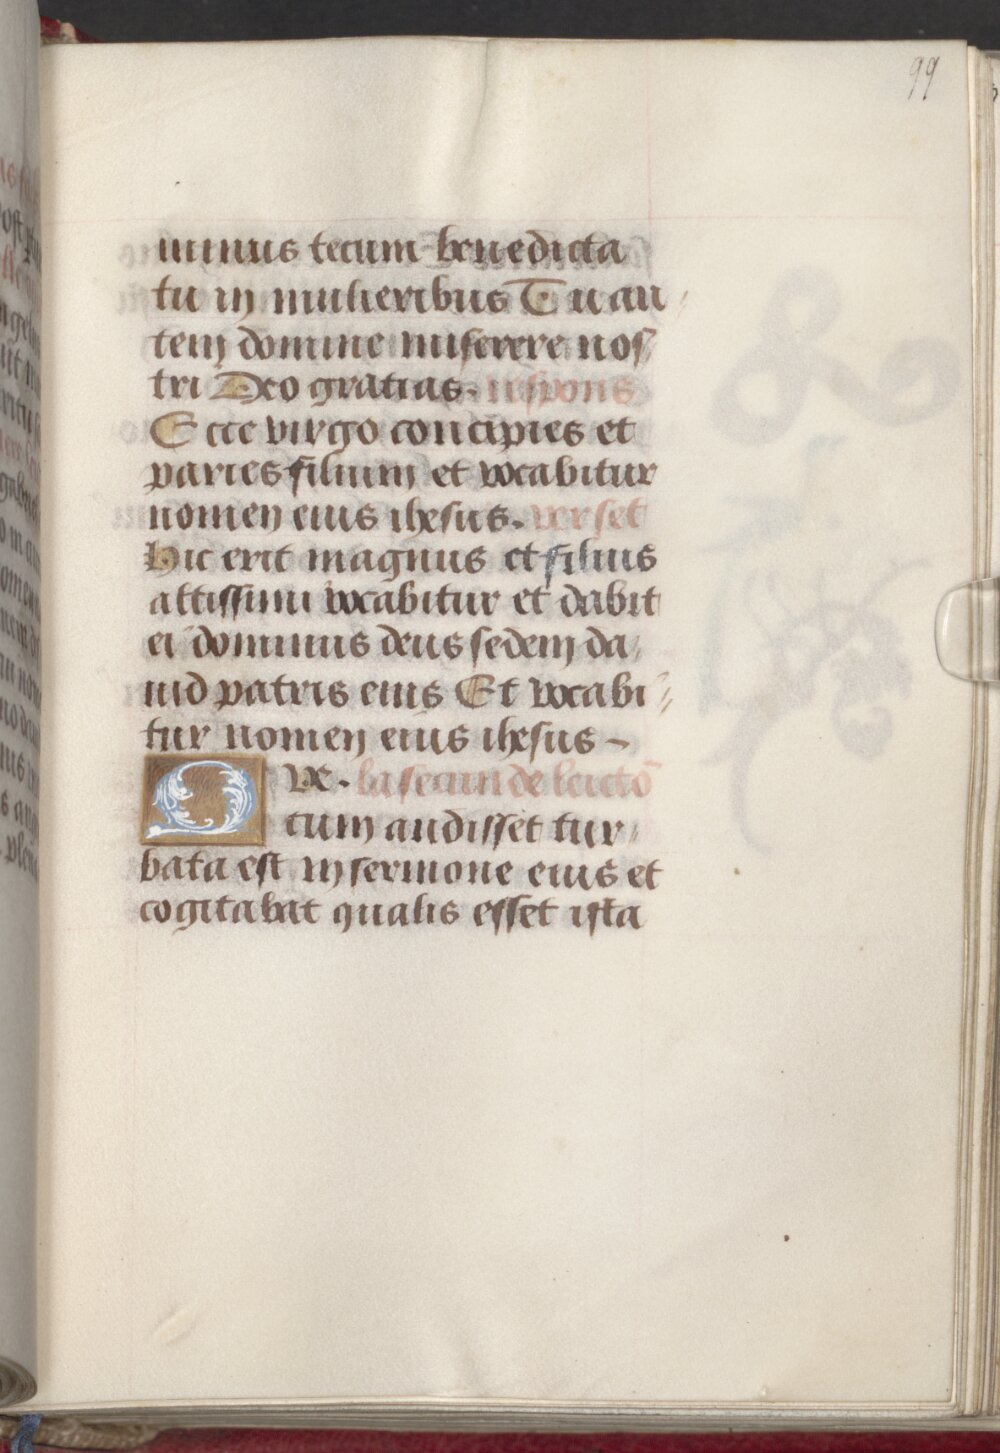 99
minus tecum benedicta
tu in mulieribus Tu au
tem domine miserere nos
tri Deo gratias. respons
Ecce virgo concipies et
paries filium et vocabitur
nomen eius ihesus. verset
Hic erit magnus et filius
altissimi vocabitur et dabit
ei dominus deus sedem da
uid patris eius Et vocabi
tur nomen eius ihesus
Ve. la secunde lecto
cum audisset tur
bata est in sermone eius et
cogitabat qualis esset ista